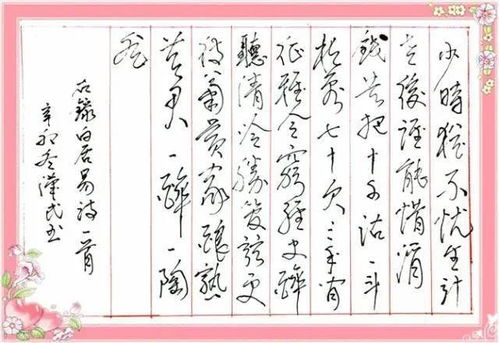 少時猶不忧生計
老後誰能惜酒
錢共把十千沽一斗
相看七十欠三年閒
征雅令窮經史醉
聽清吟勝管弦更
待菊黃家釀熟
共君一醉一陶
然
右錄白居易詩一首
辛卯冬漢民书